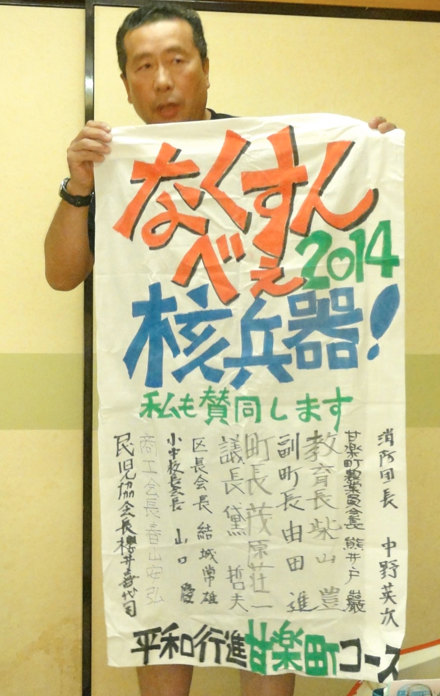 なくすん
べぇ2014
核兵器!
私も賛同します
消防団長 中野英次
甘楽町農業委員会長 熊井戸 巌
教育長 柴山 豊
副町長 由田 進
町長 茂原荘一
議長 黛 哲夫
区長会長 結城常雄
小中校長会長 山口 愛
商工会長 春山安弘
民児協会長 櫻井喜代司
平和行進甘楽町コース